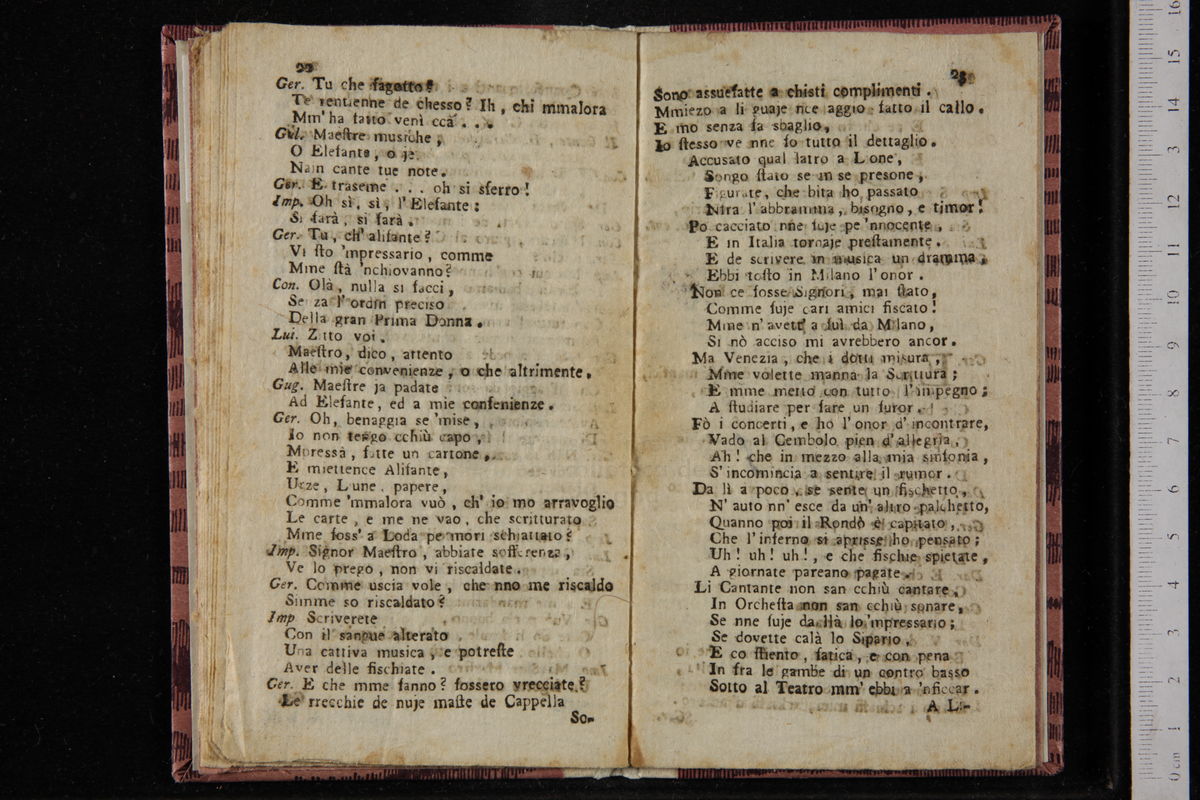 22
Ger. Tu che fagotto?
Te venuenne de chesso? Ih, chi mmalora
Mm'ha fatto venì ccà...
Gul. Maeſtre muſiche,
O Elefante, o je.
Nain cante tue note.
Ger. E traseme... oh si sferro!
Imp. Oh sì, sì, l'Elefante:
Si farà, si farà.
Ger. Tu, ch'alifante?
Vi ſto 'mpressario, comme
Mme ſtà 'nchiovanno?
Con. Olà, nulla si facci,
Senza l'ordin preciso
Della gran Prima Donna.
Lui. Zitto voi.
Maeſtro, dico, attento
Alle mie convenienze, o che altrimente.
Gug. Maeſtre ja padate
Ad Elefante, ed a mie confenienze.
Ger. Oh, benaggia se 'mise,
Io non tengo cchiù capo,
Moressà, fatte un cartone,
E miettence Alifante,
Urze, Lune, papere,
Comme 'mmalora vuò, ch'io mo arravoglio
Le carte, e me ne vao, che scritturato
Mme foss'a Loda pe mori schiattato?
Imp. Signor Maeſtro, abbiate sofferenza,
Ve lo prego, non vi riscaldate.
Ger. Comme uscia vole, che nno me riscaldo
Simme so riscaldato?
Imp Scriverete
Con il sangue alterato
Una cattiva musica, e potreſte
Aver delle fischiate.
Ger. E che mme fanno? fossero vrecciate?
Le rrecchie de nuje maſte de Cappella
So-
23
Sono assuefatte a chisti complimenti.
Mmiezo a li guaje nce aggio fatto il callo.
E mo senza fa sbaglio,
Io ſtesso ve nne fo tutto il dettaglio.
Accusato qual latro a Lone,
Songo ſtato se in se presone,
Figurate, che bita ho passato
Nfra l'abbramma, bisogno, e timor!
Po cacciato nne fuje pe'nnocente,
E in Italia tornaje preſtamente.
E de scrivere in musica un dramma,
Ebbi toſto in Milano l'onor.
Non ce fosse Signori, mai ſtato,
Comme fuje cari amici fiscato!
Mme n'avett' a fuì da Milano,
Si nò acciso mi avrebbero ancor.
Ma Venezia, che i dotti misura,
Mme volette mannà la Scrittura;
E mme metto con tutto l'impegno;
A ſtudiare per fare un furor.
Fò i concerti, e ho l'onor d'incontrare,
Vado al Cembolo pien d'allegria,
Ah! che in mezzo alla mia sinfonia,
S'incomincia a sentire il rumor.
Da lì a poco, se sente un fischetto,
N'auto nn'esce da un'altro palchetto,
Quanno poi il Rondò è capitato,
Che l'inferno si aprisse ho pensato;
Uh! uh! uh!, e che fischie spietate,
A giornate pareano pagate.
Li Cantante non san cchiù cantare,
In Orcheſta non san cchiù sonare,
Se nne fuje da llà lo mpressario;
Se dovette calà lo Sipario.
E co ſtiento, fatica, e con pena
In fra le gambe di un contro basso
Sotto al Teatro mm'ebbi a 'nficcar.
A La-